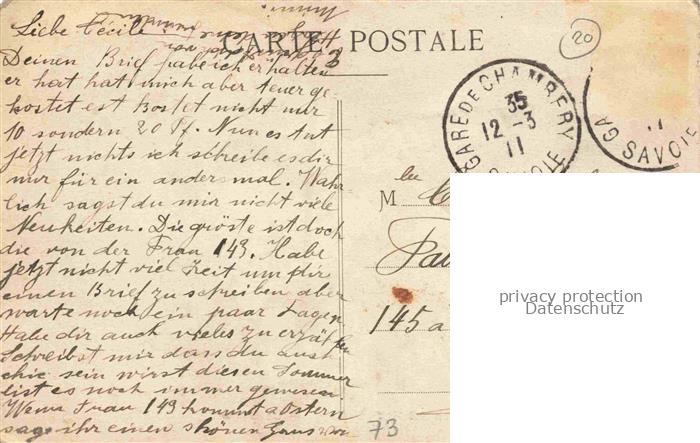 CARTE POSTALE
20
Liebe Cécile
Deinen Brief habe ich erhalten
er hat hat mich aber teuer ge
kostet est kostet nicht nur
10 sondern 20 Pf. Nun es tut
jetzt nichts ich schreibe es dir
nur für ein anders mal. Wahr
lich sagst du mir nicht viele
Neuheiten. Die gröste ist doch
die von der Frau 143. Habe
jetzt nicht viel Zeit um dir
einen Brief zu schreiben aber
warte noch ein paar Tagen
Habe dir auch vieles zu erzählen
Schreibst mir dass du auch
chic sein wirst diesen Sommer
bist es noch immer gewesen
Wenn Frau 143 kommt a Ostern
sage ihr einen schönen Gruss von
GARE DE CHAMBERY
35
12 - 3
11
SAVOIE
11
GA
SAVOIE
M
145 a
73
privacy protection
Datenschutz